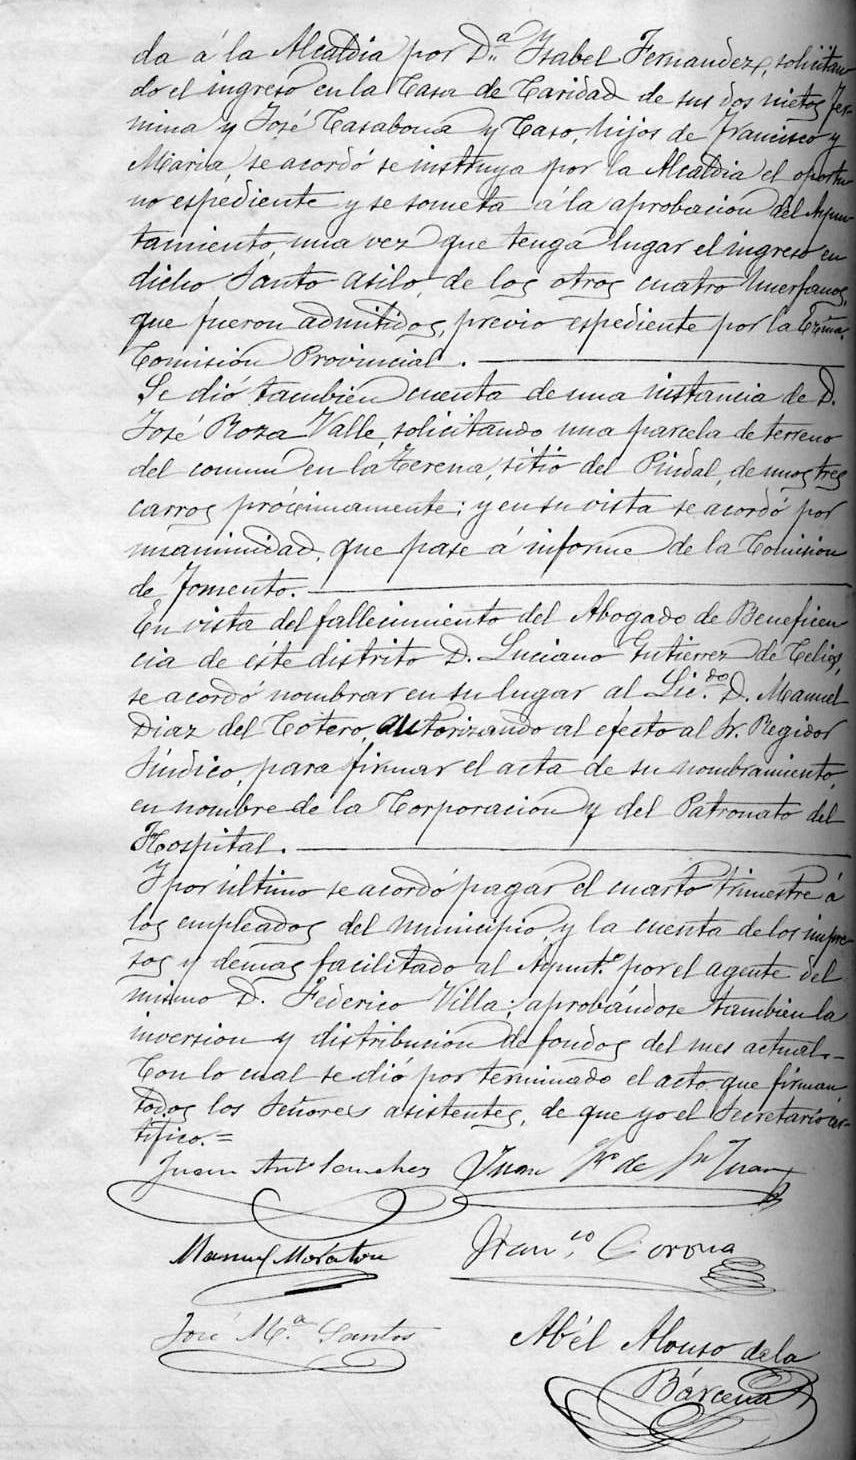 da á la Alcaldia por D.ª Ysabel Fernandez, solicitan
do el ingreso en la Casa de Caridad de sus dos nietos Fer-
mina y José Casabona y Caso, hijos de Francisco y
Maria, se acordó se instruya por la Alcaldia el oportu
no espediente y se someta á la aprobacion del Ayun
tamiento, una vez que tenga lugar el ingreso en
dicho Santo asilo, de los otros cuatro huerfanos,
que fueron admitidos, previo espediente por la Exma.
Comision Provincial.
Se dió tambien cuenta de una instancia de D.
José Roza Valle, solicitando una parcela de terreno
del comun en la Terena, sitio del Pindal, de unos tres
carros prócsimamente; y en su vista se acordó por
unanimidad, que pase á informe de la Comision
de Fomento.
En vista del fallecimiento del Abogado de Beneficen
cia de éste distrito D. Luciano Gutierrez de Celis,
se acordó nombrar en su lugar al Lic.do D. Manuel
Diaz del Cotero, autorizando al efecto al Sr. Regidor
Síndico, para firmar el acta de su nombramiento,
en nombre de la Corporacion y del Patronato del
Hospital.
Y por último se acordó pagar el cuarto trimestre á
los empleados del municipio, y la cuenta de los impre
sos y demas facilitado al Ayunt.º por el agente del
mismo D. Federico Villa; aprobándose tambien la
inversion y distribucion de fondos del mes actual.
Con lo cual se dió por terminado el acto, que firman
todos los Señores asistentes, de que yo el Secretario cer-
tifico.=
Juan Ant.º Sanchez Juan de Sn Juan
Manuel Moratou Fran.co Corona
José M.ª Santos
Abél Alonso de la
Bárcena